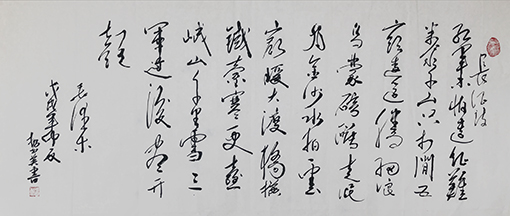 長征詩
红軍不怕遠征難
萬水千山只等閒五
嶺逶迤騰細浪
烏蒙磅礴走泥
丸金沙水拍雲
崖暖大渡橋横
鐵索寒更喜
岷山千里雪三
軍过後盡开
颜
毛泽东
戊戌年
書